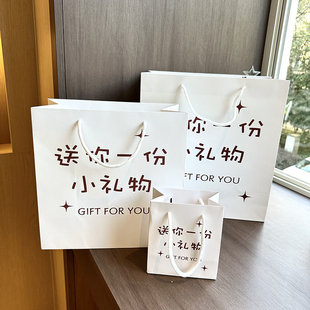 送你一份
小礼物
GIFT FOR YOU
送你一份
小礼物
GIFT FOR YOU
送你一份
小礼物
GIFT FOR YO